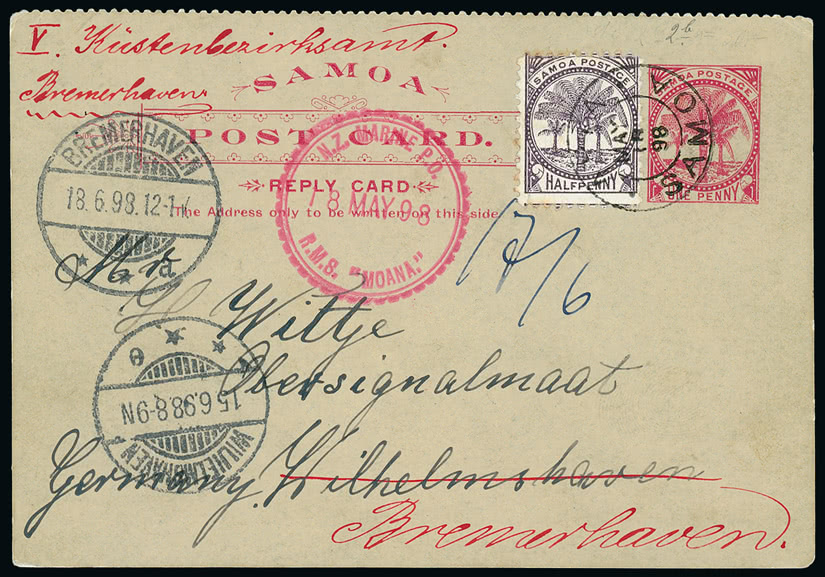 V. Küstenbezirksamt.
2b
Bremerhaven
SAMOA
POST CARD.
REPLY CARD
The Address only to be written on this side
SAMOA POSTAGE
HALFPENNY
POSTAGE
ONE PENNY
SAMOA
MAY
98
N.Z. MARINE P.O.
18 MAY 98
R.M.S. "MOANA."
BREMERHAVEN
18.6.98.12-1
17/6
Wittje
Obersignalmaat
15.6.98.8-9N
WILHELMSHAVEN
Germany. Wilhelmshaven
Bremerhaven.